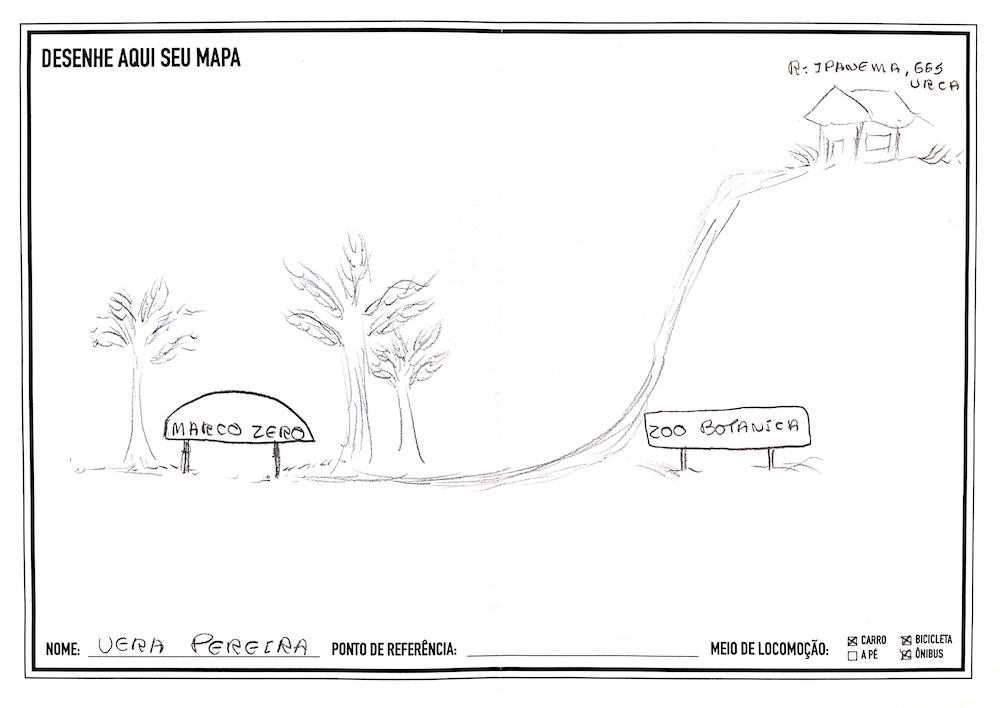 DESENHE AQUI SEU MAPA
R: IPANEMA, 665
URCA
MARCO ZERO
ZOO BOTANICA
NOME: VERA PEREIRA PONTO DE REFERÊNCIA: MEIO DE LOCOMOÇÃO: CARRO BICICLETA
A PÉ ÔNIBUS